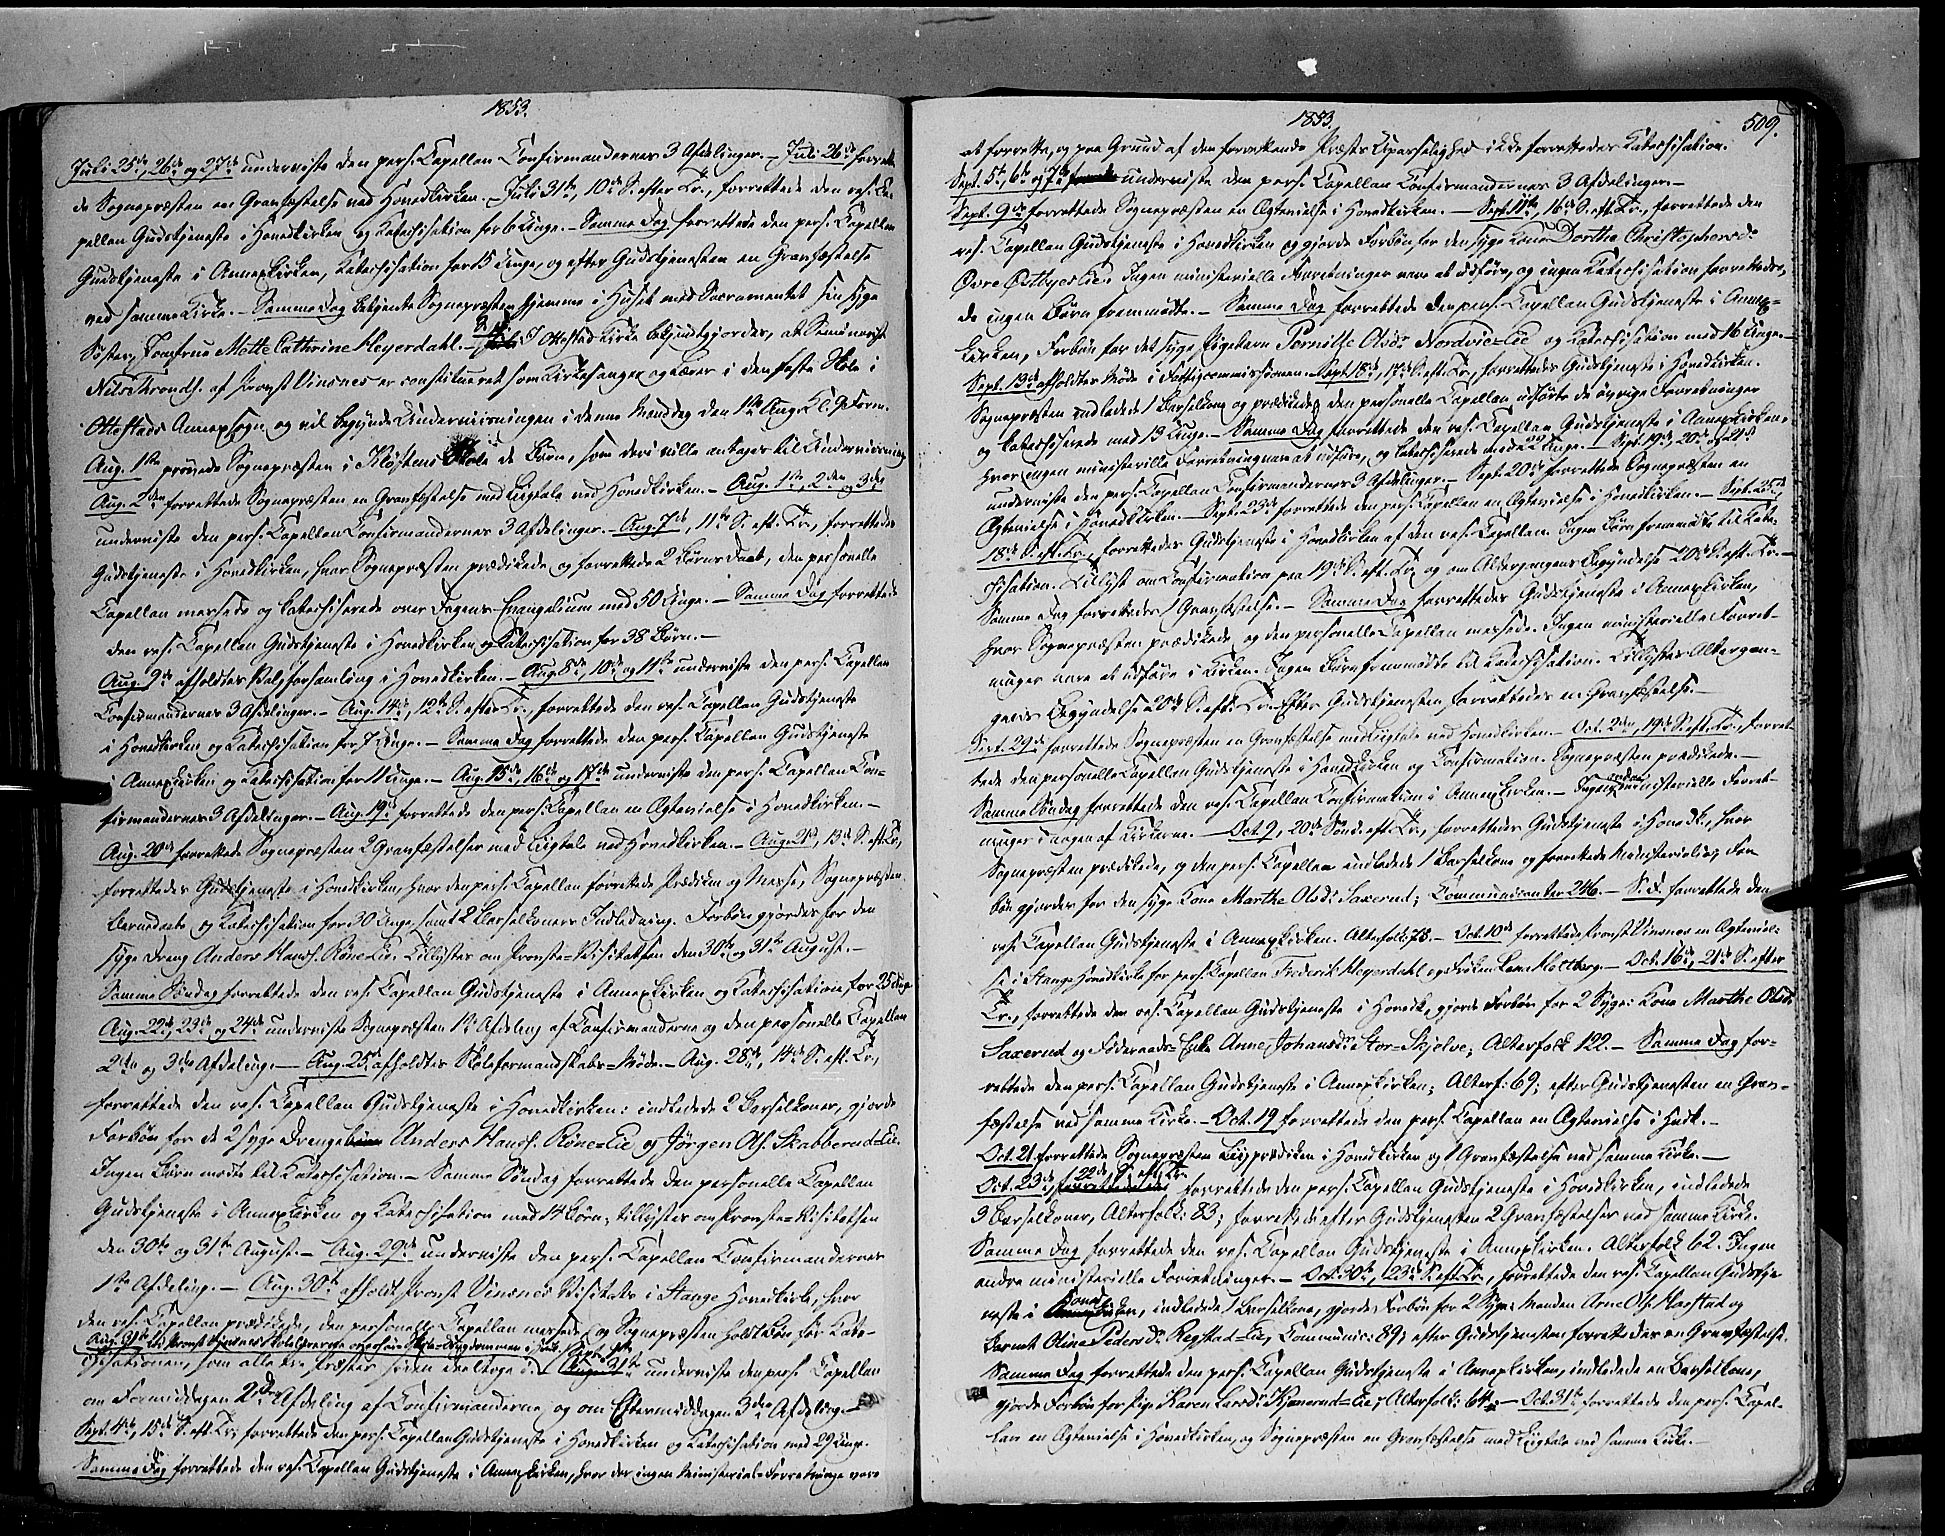 1853.
Juli 25de, 26de og 27de underviste den pers. Capellan Confirmandernes 3 Afdelinger. – Juli 26de forret-
de Sognepræsten en Gravfæstelse ved Hovedkirken. – Juli 31te, 10de S. efter Tr., forrettede den res. Ca-
pellan Gudstjeneste i Hovedkirken og Katechisation for 6 Unge. – Samme Dag forrettede den pers. Capellan
Gudstjeneste i Annexkirken, Katechisation for 15 Unge, og efter Gudstjenesten en Gravfæstelse
ved samme Kirke. – Samme Dag betjente Sognepræsten hjemme i Huset med Sacramentet sin syge
Søster, Jomfrue Mette Cathrine Heyerdahl. – I Ottestad Kirke bekjendtgjordes, at Seminarist
Nils Thronds. af Provst Vinsnes er constitueret som Kirkesanger og Lærer i den faste Skole i
Ottestads Annexsogn og vil begynde Underviisningen i denne Mandag den 1ste Aug. Kl. 9 Form.
Aug. 1ste prøvede Sognepræsten i Kløstens Skole de Børn, som deri ville antages til Underviisning.
Aug. 2den forrettede Sognepræsten en Gravfæstelse med Liigtale ved Hovedkirken. – Aug. 1ste, 2den og 3die
underviste den pers. Capellan Confirmandernes 3 Afdelinger. – Aug. 7de, 11te S. eft. Tr., forrettedes
Gudstjeneste i Hovedkirken, hvor Sognepræsten prædikede og forrettede 2 Børns Daab, den personelle
Capellan messede og katechiserede over Dagens Evangelium med 50 Unge. – Samme Dag forrettede
den res. Capellan Gudstjeneste i Hovedkirken og Katechisation for 38 Børn. –
Aug. 9de afholdtes Valgforsamling i Hovedkirken. – Aug. 8de, 10de og 11te underviste den pers. Capellan
Confirmandernes 3 Afdelinger. – Aug. 14de, 12te S. efter Tr., forrettede den res. Capellan Gudstjeneste
i Hovedkirken og Katechisation for 7 Unge. – Samme Dag forrettede den pers. Capellan Gudstjeneste
i Annexkirken og Katechisation for 11 Unge. – Aug. 15de, 16de og 17de underviste den pers. Capellan Con-
firmandernes 3 Afdelinger. – Aug. 19de forrettede den pers. Capellan en Ægtevielse i Hovedkirken. –
Aug. 20de forrettede Sognepræsten 2 Gravfæstelser med Liigtale ved Hovedkirken. – Aug. 21de, 13de S. eft. Tr.,
forrettedes Gudstjeneste i Hovedkirken, hvor den pers. Capellan forrettede Prædiken og Messe, Sognepræsten
Barnedaab og Katechisation for 30 Unge, samt 2 Barselkoners Indledning. Forbøn gjordes for den
syge Dreng Anders Hanss. Røne-Eie. Tillystes om Provste-Visitatsen den 30te og 31te August. –
Samme Søndag forrettede den res. Capellan Gudstjeneste i Annexkirken og Katechisation for 25 Unge.
Aug. 22de, 23de og 24de underviste Sognepræsten 1ste Afdeling af Confirmanderne og den personelle Capellan
2den og 3die Afdeling. – Aug. 25de afholdtes Skoleformandskabs-Møde. – Aug. 28de, 14de S. eft. Tr.,
forrettede den res. Capellan Gudstjeneste i Hovedkirken: indledede 2 Barselkoner, gjorde
Forbøn for de 2 syge Drenge Anders Hanss. Røne-Eie og Jørgen Ols. Skabberud-Eie.
Ingen Børn mødte til Katechisation. – Samme Søndag forrettede den personelle Capellan
Gudstjeneste i Annexkirken og Katechisation med 14 Børn; tillystes om Provste-Visitatsen
den 30te og 31te August. – Aug. 29de underviste den pers. Capellan Confirmandernes
1ste Afdeling. – Aug. 30te afholdt Provst Vinsnes Visitats i Stange Hovedkirke, hvor
den res. Capellan prædikede, den personelle Capellan messede og Sognepræsten holdt Bøn før Kate-
Aug. 31te
chisationen, som alle tre Præster siden deeltoge i. Sept. 1ste underviste den pers. Capellan
om Formiddagen 2den Afdeling af Confirmanderne og om Eftermiddagen 3die Afdeling. –
Sept. 4de, 15de S. eft. Tr., forrettede den pers. Capellan Gudstjeneste i Hovedkirken og Katechisation med 29 Unge.
Samme Dag forrettede den res. Capellan Gudstjeneste i Annexkirken, hvor der ingen Ministerial-Forretninge vare
1853.
509.
at forrette, og paa Grund af den forrettende Præsts Upasselighed ikke forrettedes Katechisation.
Sept. 5te, 6te og 7de underviste den pers. Capellan Confirmandernes 3 Afdelinger. –
Sept. 9de forrettede Sognepræsten en Ægtevielse i Hovedkirken. – Sept. 11te, 16de S. eft. Tr., forrettede den
res. Capellan Gudstjeneste i Hovedkirken og gjorde Forbøn for den syge Kone Dorthe Christophersdr.
Øvre Østbyes Eie. Ingen ministerielle Forretninger vare at udføre, og ingen Katechisation forrettedes,
da ingen Børn fremmødte. – Samme Dag forrettede den pers. Capellan Gudstjeneste i Annex-
kirken, Forbøn for det syge Pigebarn Pernille Olsdr. Nordvie-Eie og Katechisation med 16 Unge. –
Sept. 13de afholdtes Møde i Fattigcommissionen. Sept. 18de, 17de S. eft. Tr., forrettedes Gudstjeneste i Hovedkirken.
Sognepræsten indledede 1 Barselkone og prædikede; den personelle Capellan udførte de øvrige Forretninger
og katechiserede med 13 Unge. – Samme Dag forrettede den res. Capellan Gudstjeneste i Annexkirken,
hvor ingen ministerielle Forretninger vare at udføre, og katechiserede med Unge. – Sept. 19de, 20de og 21de
underviste den pers. Capellan Confirmandernes 3 Afdelinger. – Sept. 20de forrettede Sognepræsten en
Ægtevielse i Hovedkirken. – Sept. 23de forrettede den pers. Capellan en Ægtevielse i Hovedkirken. – Sept. 25de,
18de S. eft. Tr., forrettedes Gudstjeneste i Hovedkirken af den res. Capellan. Ingen Børn fremmødte til Kate-
chisation. Tillyst om Confirmation paa 19de S. eft. Tr. og om Altergangens Begyndelse 20de S. eft. Tr. –
Samme Dag forrettedes 1 Gravfæstelse. – Samme Dag forrettedes Gudstjeneste i Annexkirken,
hvor Sognepræsten prædikede og den personelle Capellan messede. Ingen ministerielle Forret-
ninger vare at udføre i Kirken. Ingen Børn fremmødte til Katechisation. Tillystes Altergan-
gens Begyndelse 20de S. eft. Tr. Efter Gudstjenesten forrettedes en Gravfæstelse. –
Sept. 29de forrettede Sognepræsten en Gravfæstelse med Liigtale ved Hovedkirken. – Oct. 2den, 19de S. eft. Tr., forret-
tede den personelle Capellan Gudstjeneste i Hovedkirken og Confirmation. Sognepræsten prædikede. –
Samme Søndag forrettede den res. Capellan Confirmation i Annexkirken. – Ingen andre ministerielle Forret-
ninger i nogen af Kirkerne. – Oct. 9, 20de Sønd. eft. Tr., forrettedes Gudstjeneste i Hovedk., hvor
Sognepræsten prædikede, og den pers. Capellan indledede 1 Barselkone og forrettede Ministerialia; For-
bøn gjordes for den syge Kone Marthe Olsdr. Saxerud; Communicanter 246. – S. D. forrettede den
res. Capellan Gudstjeneste i Annexkirken. Alterfolk: 78. – Oct. 10de forrettede Provst Vinsnes en Ægteviel-
se i Stange Hovedkirke for pers. Capellan Frederik Heyerdahl og Frøken Lena Moltberg. – Oct. 16de, 21de S. efter
Tr., forrettede den res. Capellan Gudstjeneste i Hovedk., gjorde Forbøn for 2 Syge: Kone Marthe Olsdr.
Saxerud og Føderaads-Enke Anne Johansdr. Stor-Skjelve; Alterfolk 122. – Samme Dag for-
rettede den pers. Capellan Gudstjeneste i Annexkirken; Alterf. 69; efter Gudstjenesten en Grav-
fæstelse ved samme Kirke. – Oct. 19 forrettede den pers. Capellan en Ægtevielse i Hvdk. –
Oct. 21 forrettede Sognepræsten Liigprædiken i Hovedkirken og 1 Gravfæstelse ved samme Kirke. –
Oct. 23de, 22de S. eft. Tr. forrettede den pers. Capellan Gudstjeneste i Hovedkirken, indledede
3 Barselkoner, Alterfolk: 83; forrettede efter Gudstjenesten 2 Gravfæstelser ved samme Kirke.
Samme Dag forrettede den res. Capellan Gudstjeneste i Annexkirken. Alterfolk 62. Ingen
andre ministerielle Forretninger. – Oct. 30te, 23de S. eft. Tr., forrettede den res. Capellan Gudstje-
neste i Hovedkirken, indledede 1 Barselkone, gjorde Forbøn for 2 Syge: Manden Arne Ols. Harstad og
Barnet Oline Pedersdr. Ringstad-Eie, Communic: 89; efter Gudstjenesten forrettedes en Gravfæstelse.
Samme Dag forrettede den pers. Capellan Gudstjeneste i Annexkirken, indledede en Barselkone,
gjorde Forbøn for Pige Karen Larsdr. Kjonerud-Eie; Alterfolk: 64. – Oct. 31te forrettede den pers. Capel-
lan en Ægtevielse i Hovedkirken, og Sognepræsten en Gravfæstelse med Liigtale ved samme Kirke. –